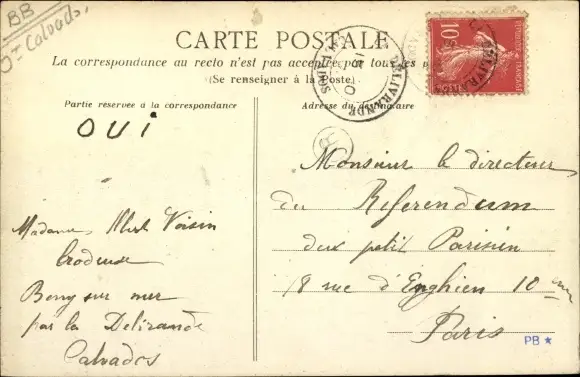 BB
Calvados,
CARTE POSTALE
La correspondance au recto n'est pas acceptée par tous les
(Se renseigner à la Poste.)
Partie réservée à la correspondance
OUI
Madame Albert Voisin
Brodeuse
Berny sur mer
par la Delivrande
Calvados
Adresse du destinataire
Monsieur le directeur
du Referendum
du petit Parisien
18 rue d'Enghien 10eme
Paris
PB ★
10
POSTES
DELIVRANDE